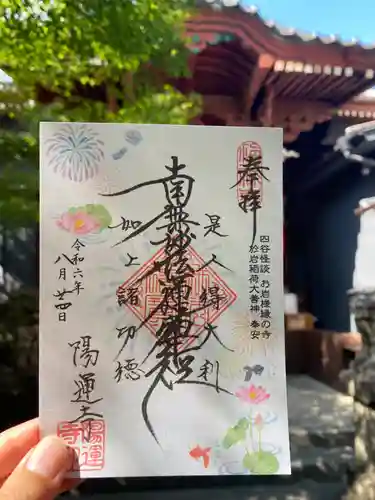 奉拝
四谷怪談 お岩様縁の寺
妙岩稲荷大善神 奉安
是人得大利
南無妙法蓮華経
如上諸功徳
令和六年
八月廿四日
陽運寺